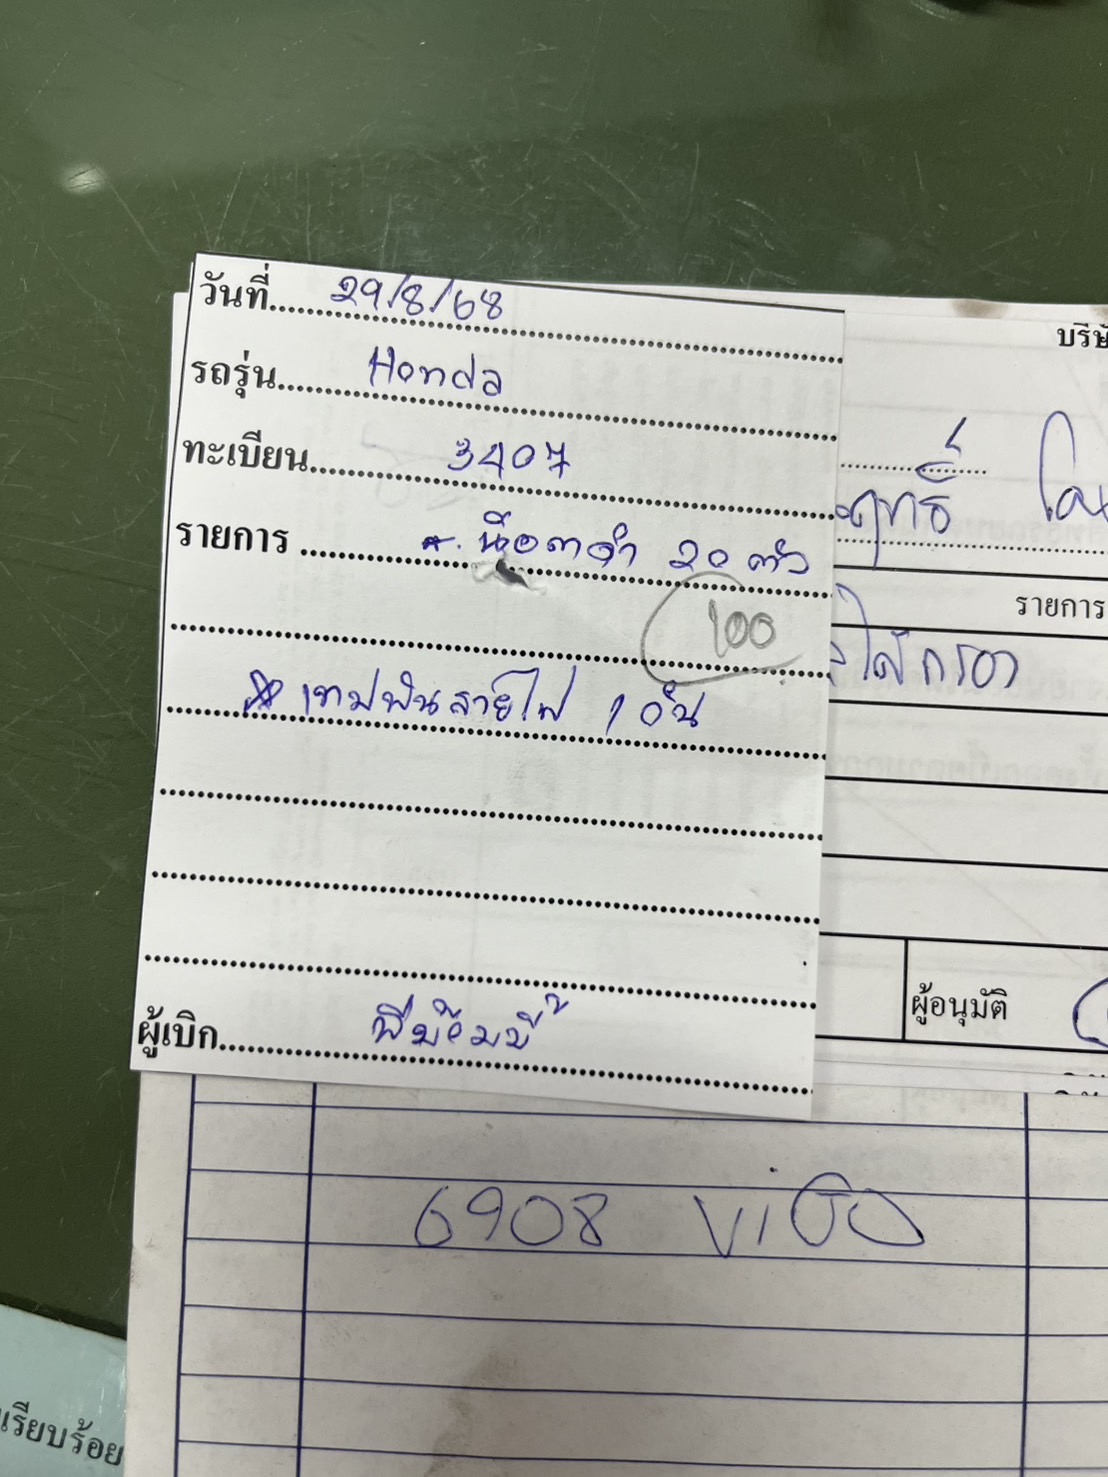 วันที่ 29/8/68
รถรุ่น Honda
ทะเบียน 3407
รายการ น๊อตดำ 20 ตัว
100
เทปพันสายไฟ 1 อัน
ผู้เบิก
บริษั
รายการ
ไส้กรอง
ผู้อนุมัติ
6908 ViGO
เรียบร้อย